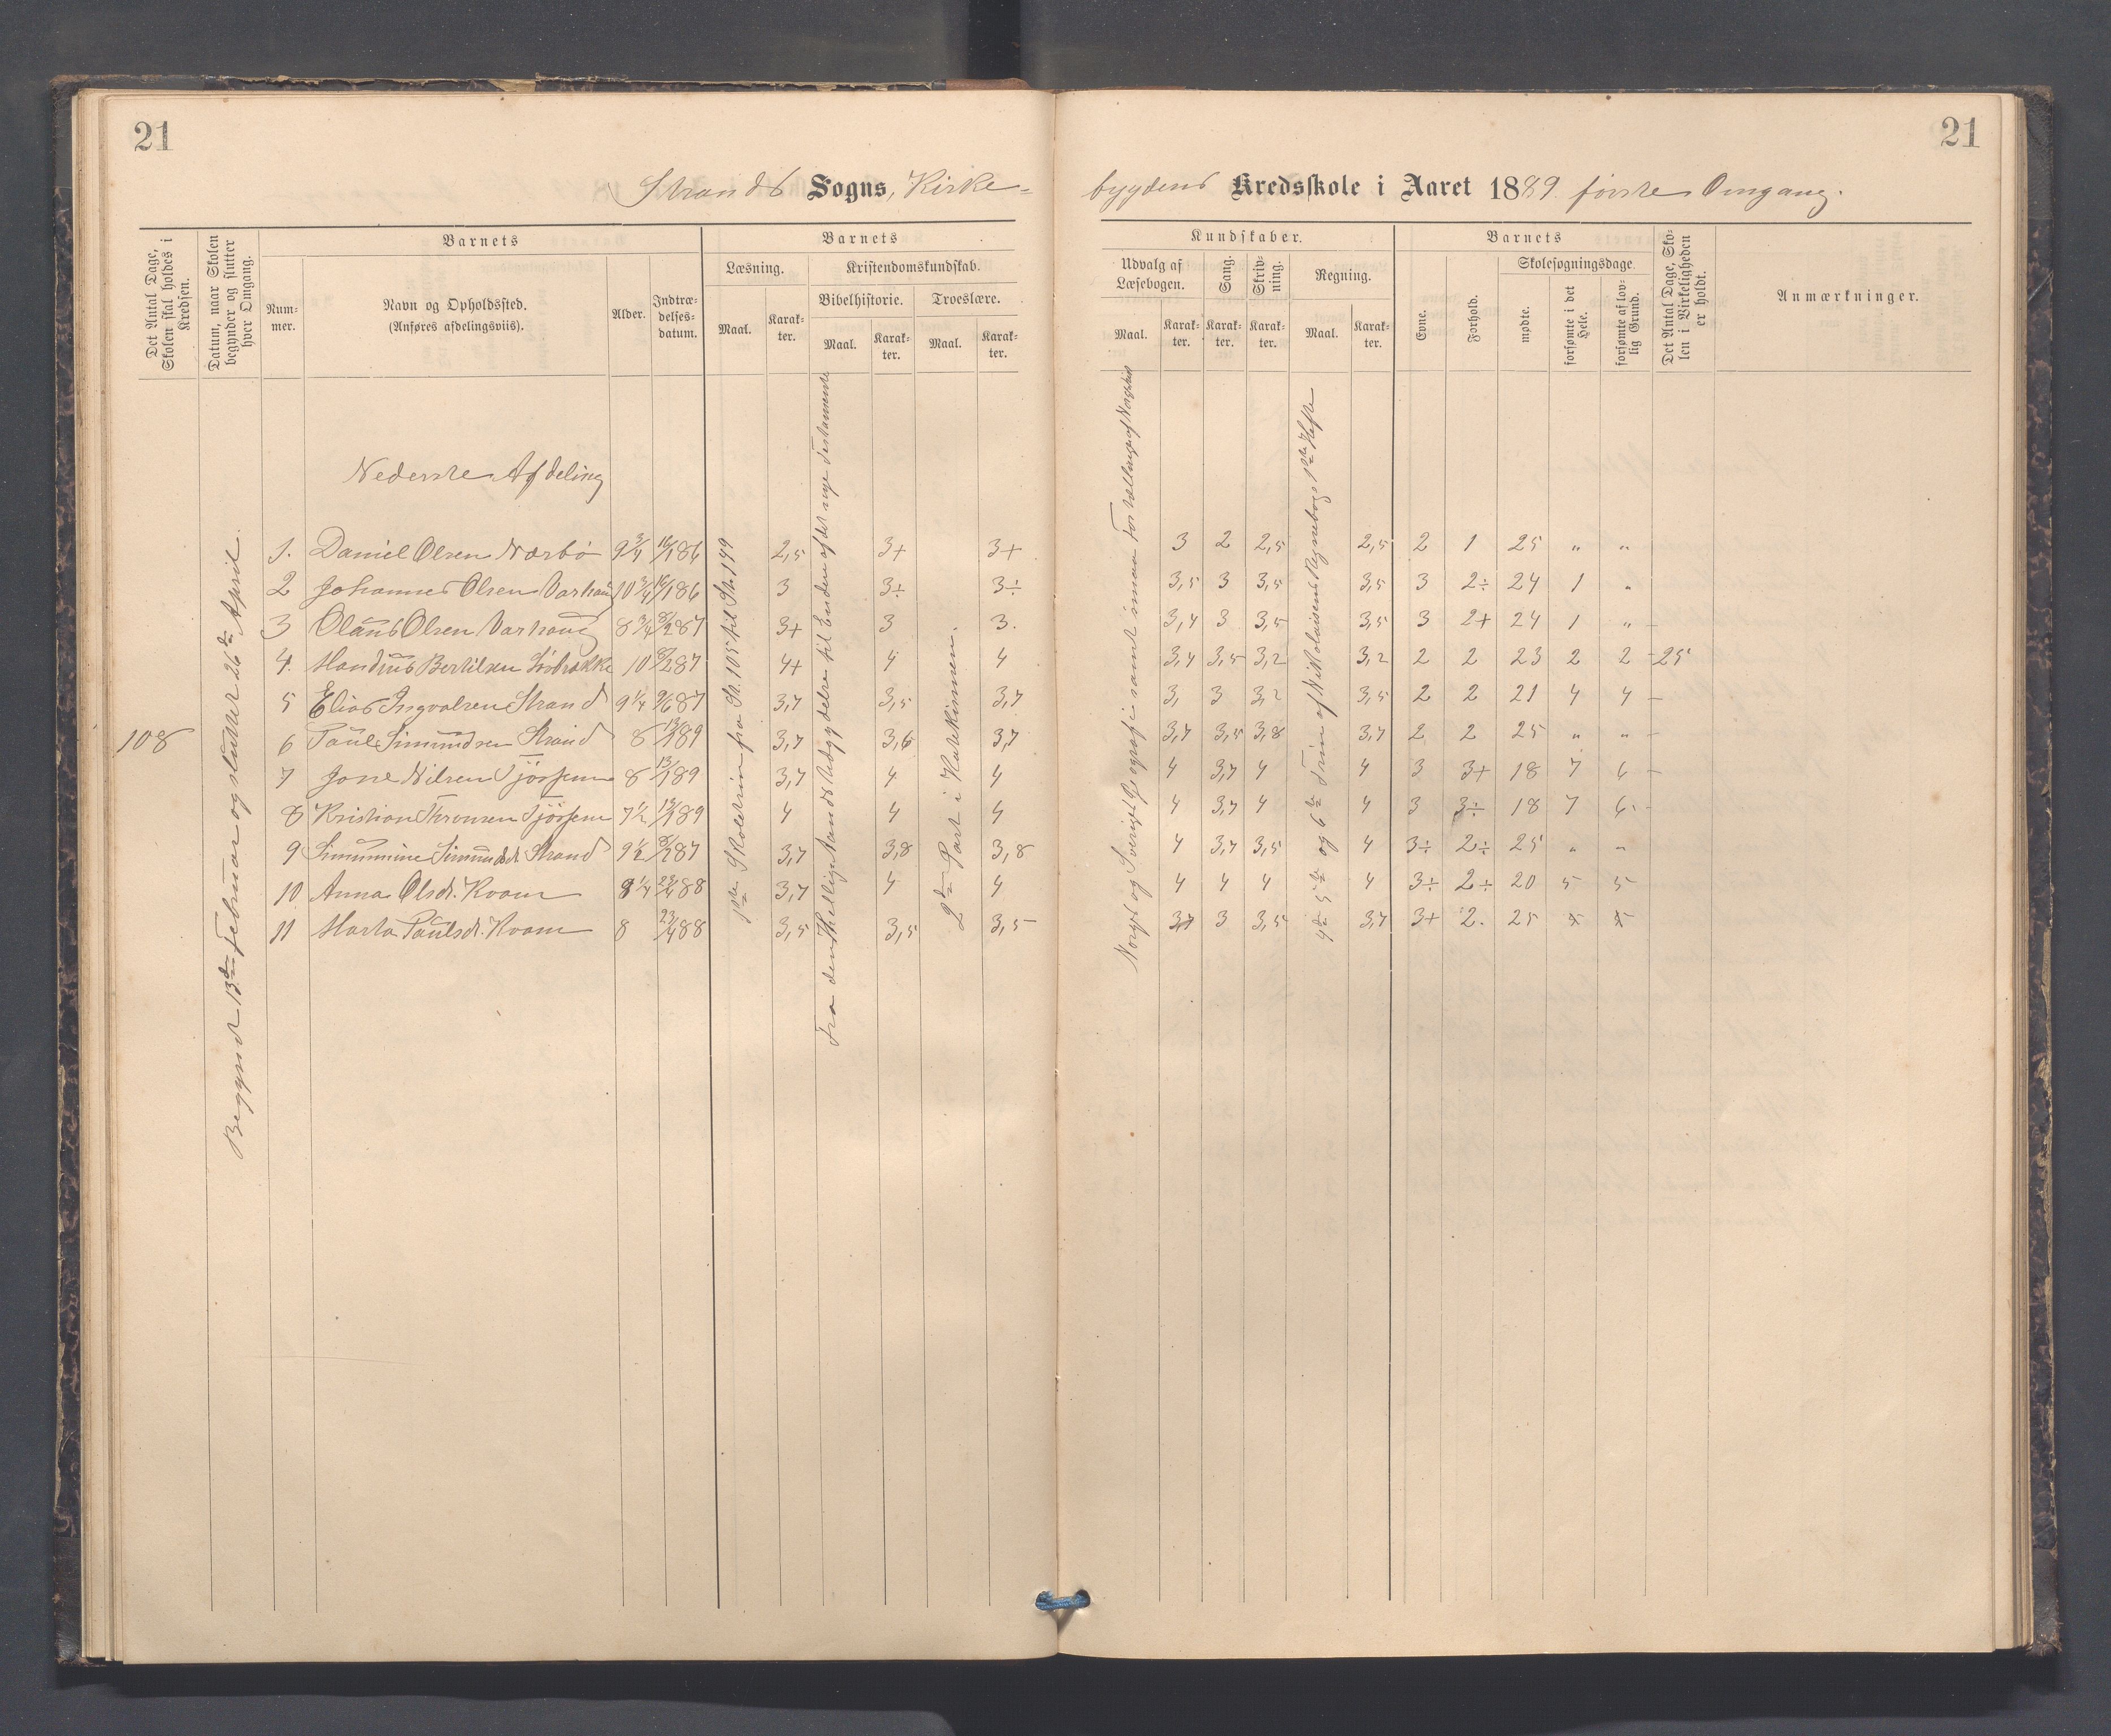 21
21
Strands Sogns, Kirke-
bygdens Kredsskole i Aaret 1889. første Omgang.
Det Antal Dage, Skolen skal holdes i Kredsen.
Datum, naar Skolen begynder og slutter hver Omgang.
Barnets
Num-mer.
Navn og Opholdssted.
(Anføres afdelingsviis).
Alder.
Indtræ-delses-datum.
Barnets
Læsning.
Maal.
Karak-ter.
Kristendomskundskab.
Bibelhistorie.
Maal.
Karak-ter.
Troeslære.
Maal.
Karak-ter.
Kundskaber.
Udvalg af Læsebogen.
Maal.
Karak-ter.
Sang.
Karak-ter.
Skriv-ning.
Karak-ter.
Regning.
Maal.
Karak-ter.
Barnets
Evne.
Forhold.
Skolesøgningsdage.
mødte.
forsømte i det Hele.
forsømte af lov-lig Grund.
Det Antal Dage, Sko-len i Virkeligheden er holdt.
Anmærkninger.
108
Begyndt 13de Februar og sluttet 26de April.
1ste Skoletrin fra St. 105 til St. 149
Fra den Hellig Aands Udgydelse til Enden af det nye Testamente
2den Part i Katekismen.
Norges og Sveriges Geografi samt Fortællinger af Norgeshist
4de 5te og 6te Trin af Nikolaisens Regnebogs 1ste Hefte
Nederste Afdeling
1. Daniel Olsen Nærbø 9 3/4 16/1 86 2,5 3+ 3+ 3 2 2,5 2,5 2 1 25 " "
2 Johannes Olsen Varhaug 10 3/4 16/1 86 3 3÷ 3÷ 3,5 3 3,5 3,5 3 2÷ 24 1 "
3 Olaus Olsen Varhaug 8 3/4 8/2 87 3+ 3 3. 3,4 3 3,5 3,5 3 2+ 24 1 "
4. Bertilsen 10 8/2 87 4+ 4 4 3,4 3,5 3,2 3,2 2 2 23 2 2 25
5 Elias Ingvalsen Strand 9 1/4 9/6 87 3,7 3,5 3,7 3, 3 3,2 3,5 2 2 21 4 4
6 Paul Simundsen Strand 8 13/1 89 3,7 3,6 3,7 3,7 3,5 3,8 3,7 2 2 25 " "
7 Jone Nilsen Tjøssem 8 13/1 89 3,7 4 4 4 3,7 4 4 3 3+ 18 7 6
8 Kristian Thronsen Tjøssem 7 1/2 13/1 89 4 4 4 4 3,7 4 4 3 3÷ 18 7 6
9 Simunmine Simundsd. Strand 9 1/2 8/2 87 3,7 3,8 3,8 4 3,7 3,5 4 3÷ 2÷ 25 " "
10 Anna Olsdt. Kvam 8 1/4 23/4 88 3,7 4 4 4 4 4 4 3÷ 2÷ 20 5 5
11 Marta Paulsdt. Kvam 8 23/4 88 3,5 3,5 3,5 3,7 3 3,5 3,7 3+ 2. 25